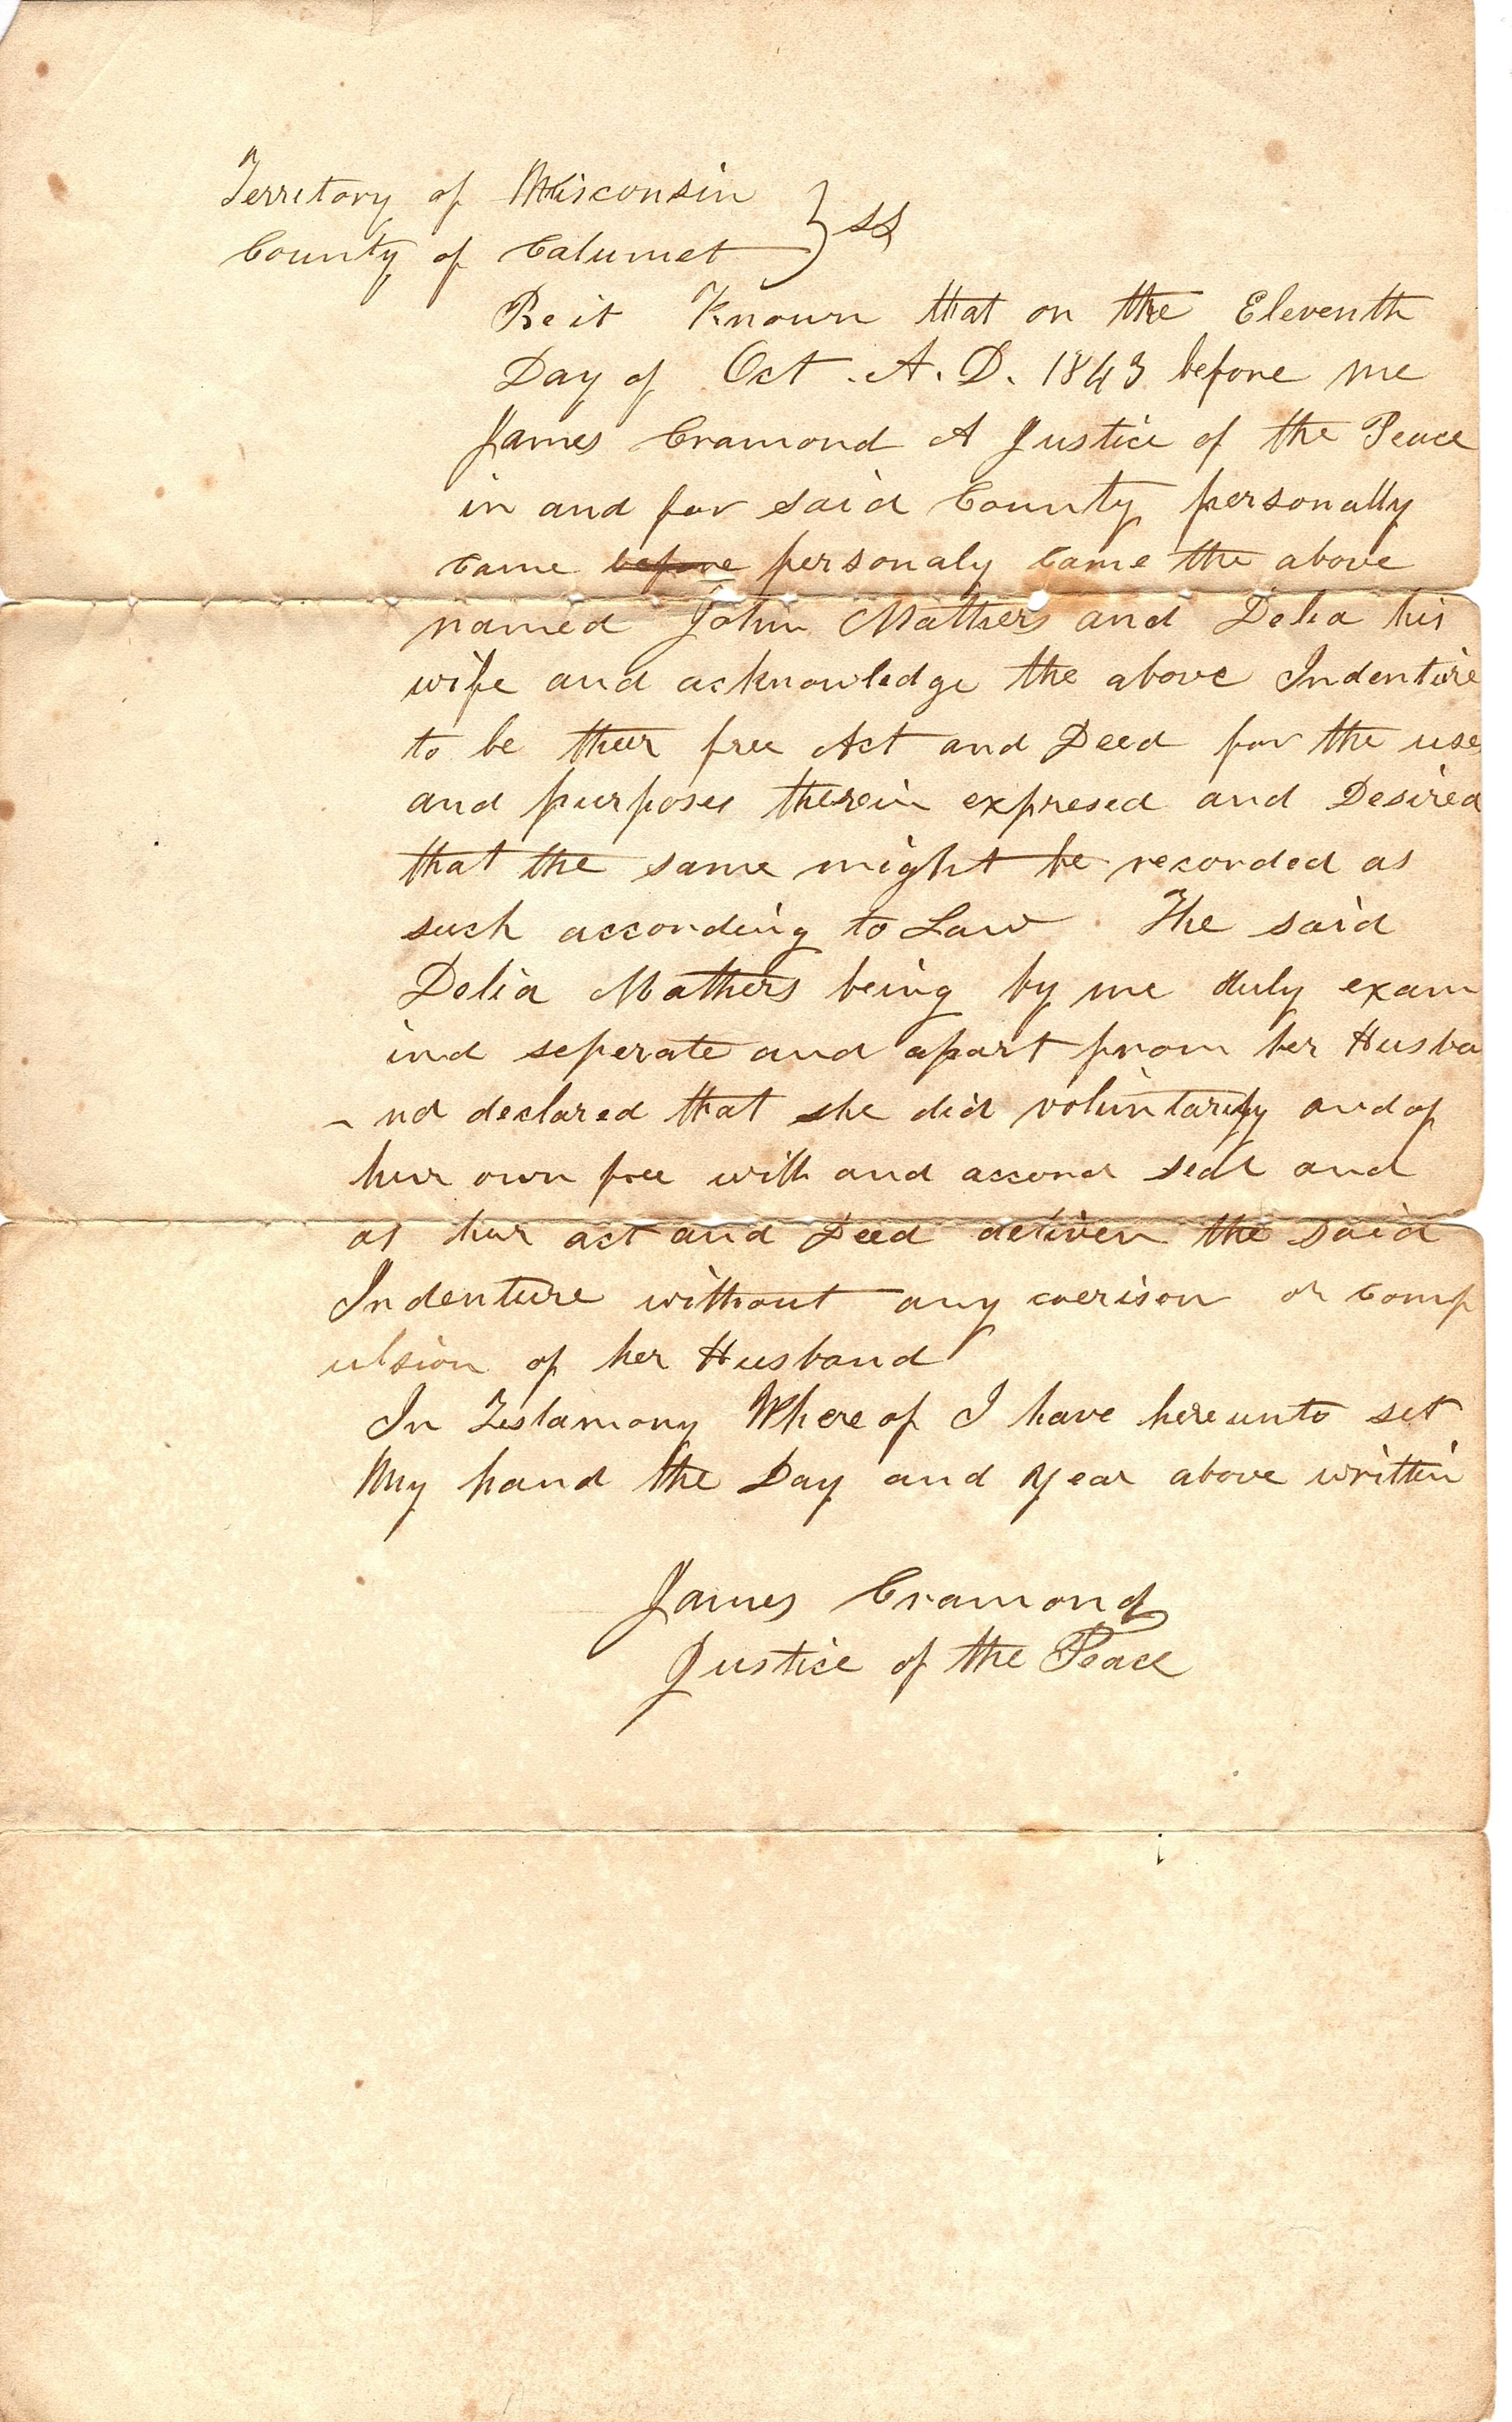 Territory of Wisconsin } SS
County of Calumet
Be it Known that on the Eleventh
Day of Oct. A. D. 1843 before me
James Cramond A Justice of the Peace
in and for said County personally
came before personaly came the above
named John Mathers and Delia his
wife and acknowledge the above Indenture
to be their free Act and Deed for the use
and purposes therein expresed and Desired
that the same might be recorded as
such according to Law The said
Delia Mathers being by me duly exam
ind seperate and apart from her Husba
- nd declared that she did voluntarily and of
her own free will and accord seal and
as her act and Deed deliver the said
Indenture without any coerison or comp
ulsion of her Husband
In Testamony Where of I have here unto set
My hand the Day and Year above written
James Cramond
Justice of the Peace